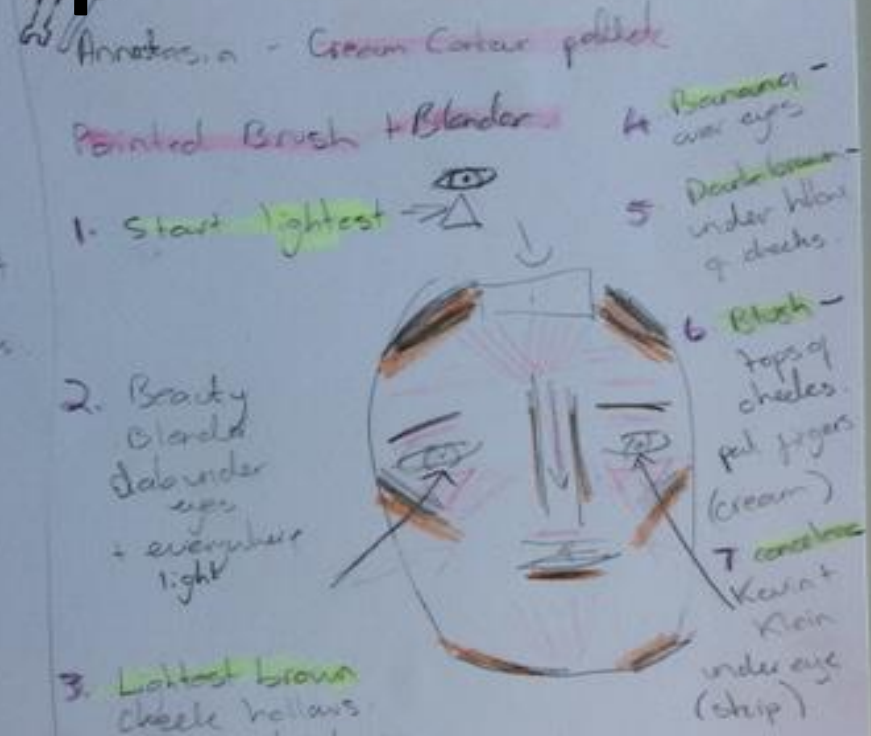 Annatasia - Cream Contour pallete
Pointed Brush + Blender
1. Start lightest
2. Beauty
Blender
dab under
eyes
+ everywhere
light
3. Lightest brown
cheek hollows
4 Banana -
over eyes
5 Dark brown -
under hllow
of cheeks.
6 Blush -
tops of
cheeks.
fingers
(cream)
7
Kevin +
Klein
under eye
(strip)